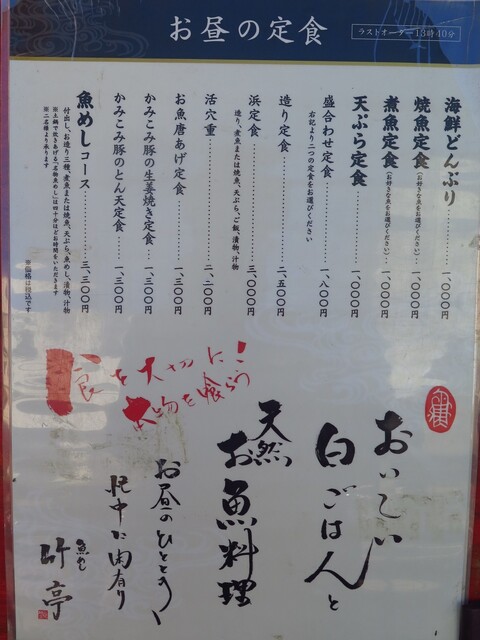 お昼の定食
ラストオーダー13時40分
海鮮どんぶり………一、〇〇〇円
焼魚定食(お好きな魚をお選びください)…一、〇〇〇円
煮魚定食(お好きな魚をお選びください)…一、〇〇〇円
天ぷら定食………一、〇〇〇円
盛合わせ定食………一、八〇〇円
右記より二つの定食をお選びください
造り定食………二、五〇〇円
浜定食………三、〇〇〇円
造り、煮魚または焼魚、天ぷら、ご飯、漬物、汁物
活穴重………二、二〇〇円
お魚唐あげ定食………一、三〇〇円
かみこみ豚の生姜焼き定食…一、三〇〇円
かみこみ豚のとん天定食…一、三〇〇円
魚めしコース………三、三〇〇円
付出し、お造り三種、煮魚または焼魚、天ぷら、魚めし、漬物、汁物
※土鍋で炊きあげる「名物魚めし」は四十分ほどお時間をいただきます
※二名様より承ります
※価格は税込です
食を大切に!
本物を喰らう
おいしい
白ごはんと
天然
お魚料理
お昼のひととき
忙中に閑有り
魚めし
竹亭